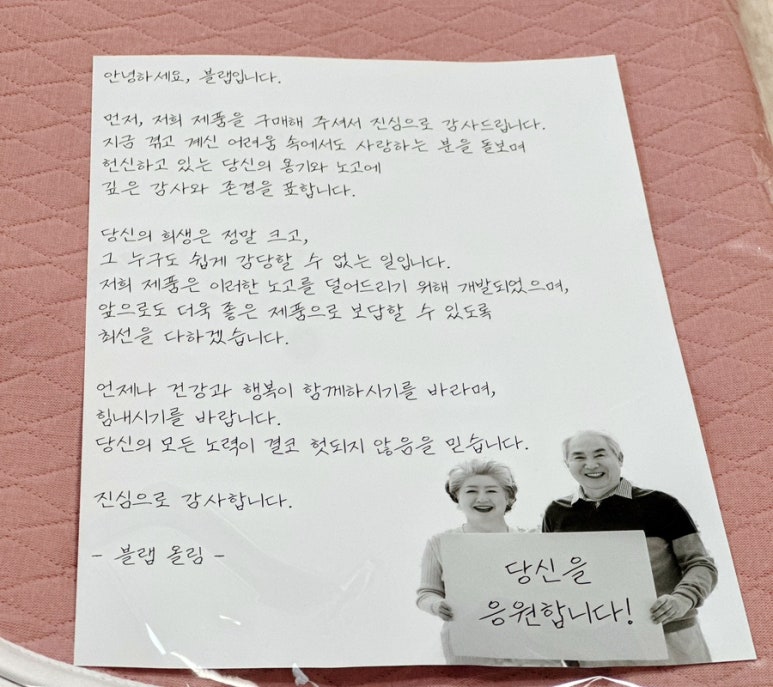 안녕하세요, 블랩입니다.
먼저, 저희 제품을 구매해 주셔서 진심으로 감사드립니다.
지금 겪고 계신 어려움 속에서도 사랑하는 분을 돌보며
헌신하고 있는 당신의 용기와 노고에
깊은 감사와 존경을 표합니다.
당신의 희생은 정말 크고,
그 누구도 쉽게 감당할 수 없는 일입니다.
저희 제품은 이러한 노고를 덜어드리기 위해 개발되었으며,
앞으로도 더욱 좋은 제품으로 보답할 수 있도록
최선을 다하겠습니다.
언제나 건강과 행복이 함께하시기를 바라며,
힘내시기를 바랍니다.
당신의 모든 노력이 결코 헛되지 않음을 믿습니다.
진심으로 감사합니다.
- 블랩 올림 -
당신을
응원합니다!